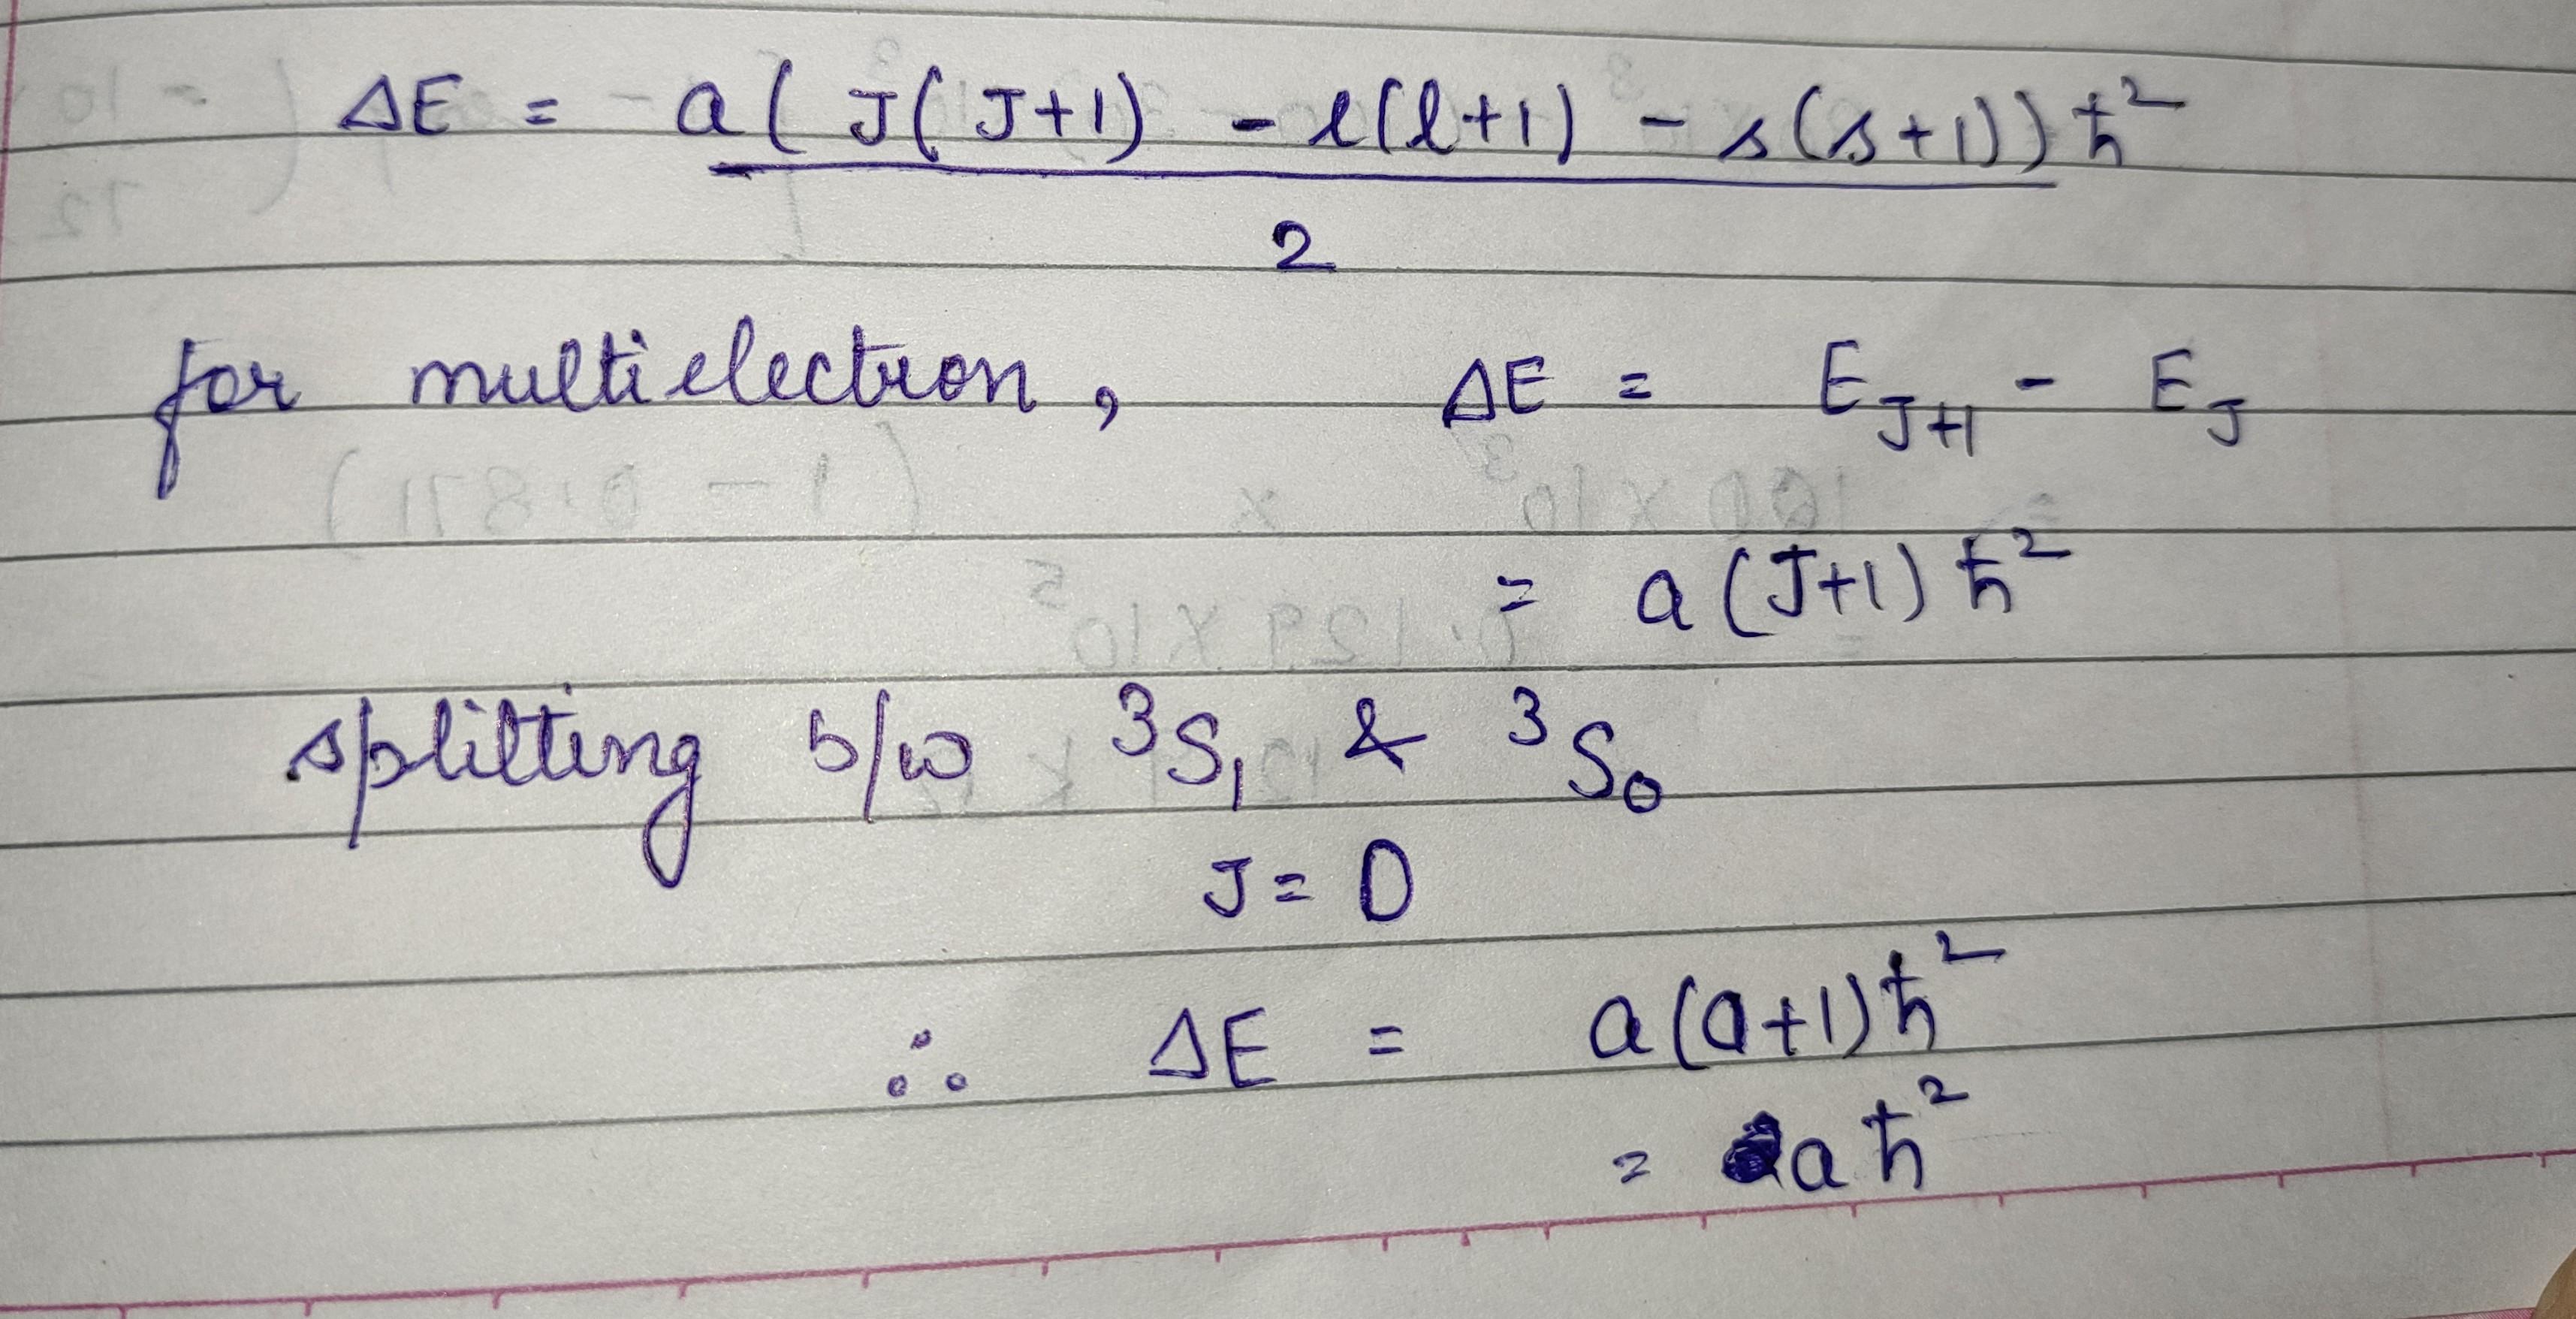 ΔE = a(J(J+1) - l(l+1) - s(s+1))ħ²
2
for multielectron, ΔE = E_J+1 - E_J
= a(J+1)ħ²
splitting b/w ³S₁ & ³S₀
J = 0
∴ ΔE = a(0+1)ħ²
= aħ²